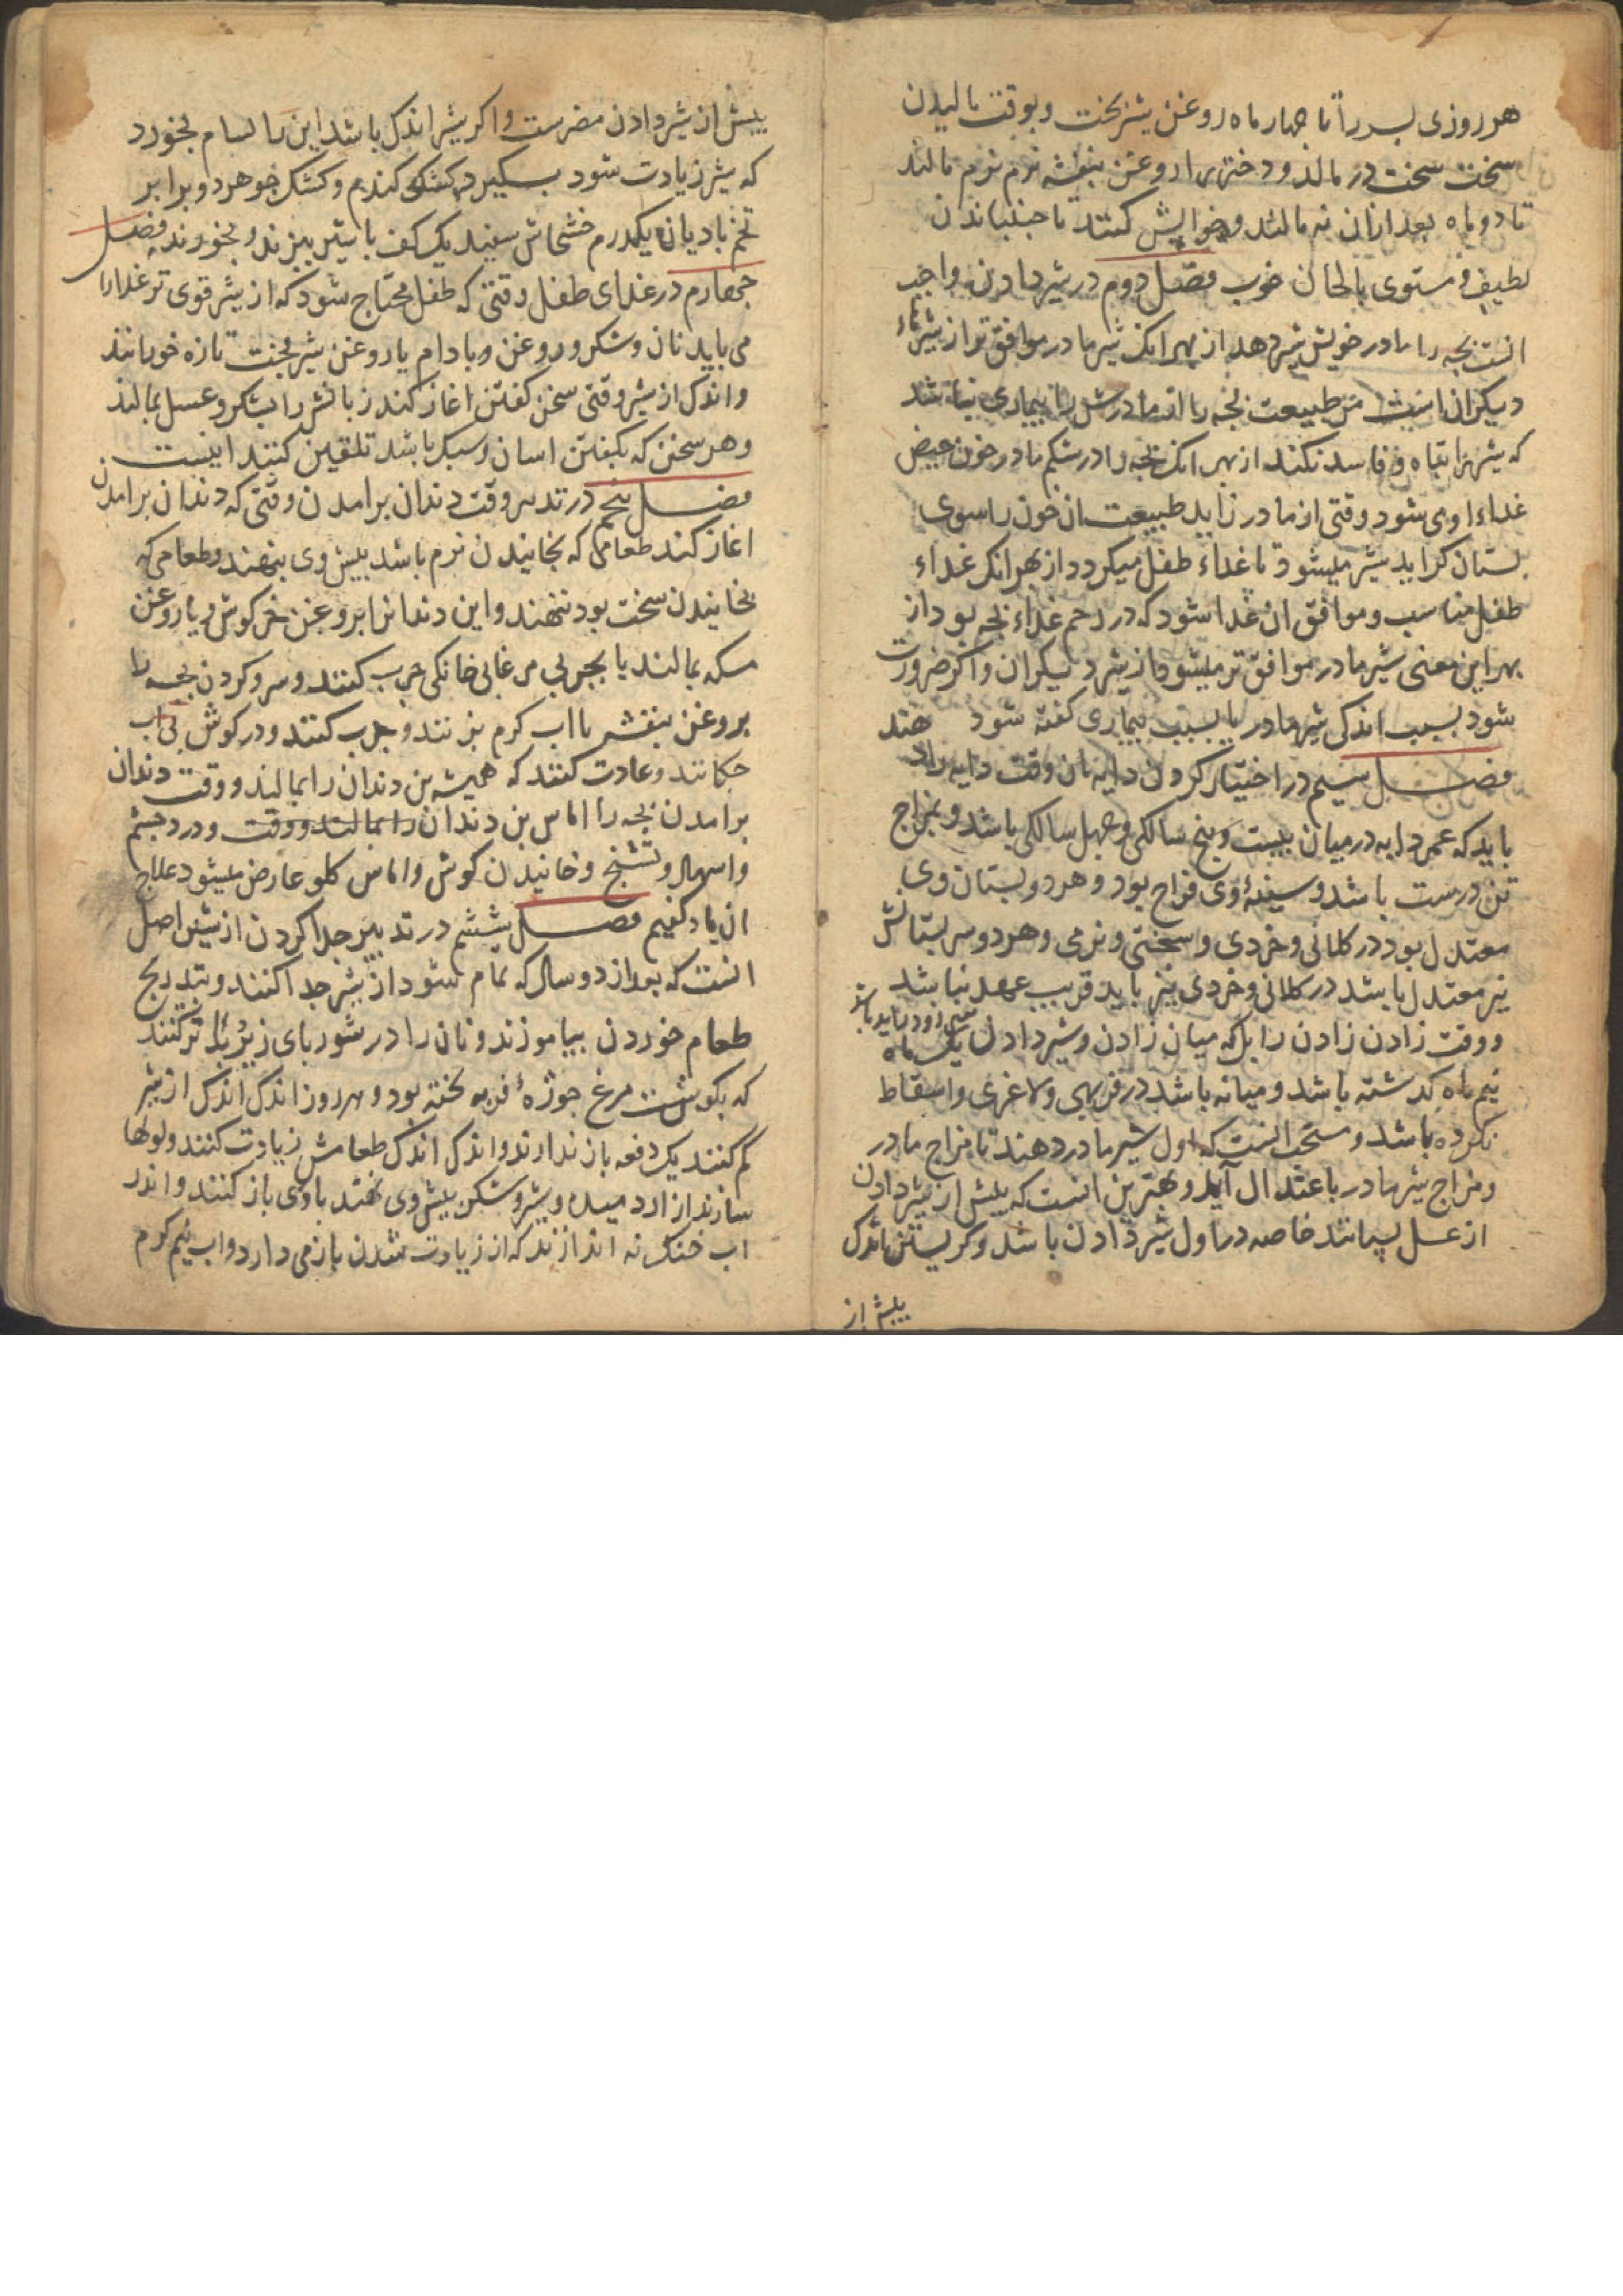 هر روزی پسر را تا چهار ماه روغن شیربخت و بوقت مالیدن
سخت سخت در مالند و دختر را روغن بنفشه نرم نرم مالند
تا دو ماه بعد ازان نه مالند و خوابش کنند با جنبانیدن
لطیف و مستوی بالحان خوب فصل دوم در شیر دادن واجب
انست بجه را مادر خویش شیر دهد از بهر انک شیر مادر موافق تر از شیرهاء
دیکران است من طبیعت بجه را اندما درش را بیماری نباشد
که شیر را تباه و فاسد نکند از بهر انک بجه را در شکم مادر خون حیض
غذاء او می شود وقتی از مادر زاید طبیعت ان خون را سوی
پستان کراید شیر میشود تا غذاء طفل میکردد از بهر انکر غذاء
طفل مناسب و موافق ان غذا شود که در رحم غذاء بجه بود از
بهر این معنی شیر مادر موافق تر میشود از شیر دیکران و اکر ضرورت
شود بسبب اندکی شیر مادر یا بسبب بیماری کفته شود هند
فصل سیم در اختیار کردن دایه بان وقت دایه را
باید که عمر دایه در میان بیست و پنج سالکی و چهل سالکی باشد و بمزاج
تن درست باشد و سینهٔ وی فراخ بود و هر دو پستان وی
معتدل بود در کلانی و خردی و سختی و نرمی و هر دو سر پستانش
نیز معتدل باشد در کلانی و خردی نیز باید قریب عهد نباشد
و وقت زادن زادن را بل که میان زادن و شیر دادن یک ماه
نیم ماه کذشته باشد و میانه باشد در فربهی و لاغری و اسقاط
نکرده باشد و مستحب انست که اول شیر مادر دهند تا مزاج مادر
و مزاج شیر مادر باعتدال آید و بهترین انست که پیش از شیر دادن
از عسل بیمانند خاصه در اول شیر دادن باشد و کریستن اندک
پیش از
پیش از شیر دادن مضر ست و اکر شیر اندک باشد این را بخورد
که شیر زیادت شود بسکیرد کشک کندم و کشک جو هر دو برابر
تخم بادیان یکدرم خشخاش سفید یک کف با شیر بپزند و بخورند فصل
جهارم در غذای طفل وقتی که طفل محتاج شود که از شیر قوی تر غذا را
می باید نان و شکر و روغن و بادام یا روغن شیربخت تازه خورانند
و اندک از شیر وقتی سخن کفتن اغاز کند زبانش را بشکر و عسل بمالند
و هر سخن که بکفتن اسان و سبک باشد تلقین کنند اینست
فصل پنجم در تدبیر وقت دندان برامدن وقتی که دندان برامدن
اغاز کند طعامی که بخاییدن نرم باشد پیش وی بنهند و طعامی که
بخاییدن سخت بود ننهند و این دندانرا بروغن خرکوش و یا روغن
مسکه بمالند یا بجربی مرغابی خانکی جرب کنند و سر و کردن بجه را
بروغن بنفشه با اب کرم بزنند و جرب کنند و در کوش بی اب
جکانند و عادت کنند که همیشه بن دندان را بمالند و وقت دندان
برامدن بجه را اماس بن دندان را بمالند و وقت و درد جشم
و اسهال و تشنج و خاییدن کوش و اماس کلو عارض میشود علاج
ان یاد کنیم فصل ششم در تدبیر جدا کردن از شیر اصل
انست که بعد از دو سال که تمام شود از شیر جدا کنند و بتدریج
طعام خوردن بیاموزند و نان را در شوربای زیربا تر کنند
که بکوشت مرغ جوژهٔ فربه پخته بود و هر روز اندک اندک از شیر
کم کنند یک دفعه باز ندارند و اندک اندک طعامش زیادت کنند و لوله‌ها
سازند از ارد میده و شیر و شکر پیش وی نهند بازی باز کنند و اندر
اب خنک نه اندازند که از زیادت شدن باز می دارد و اب نیم کرم